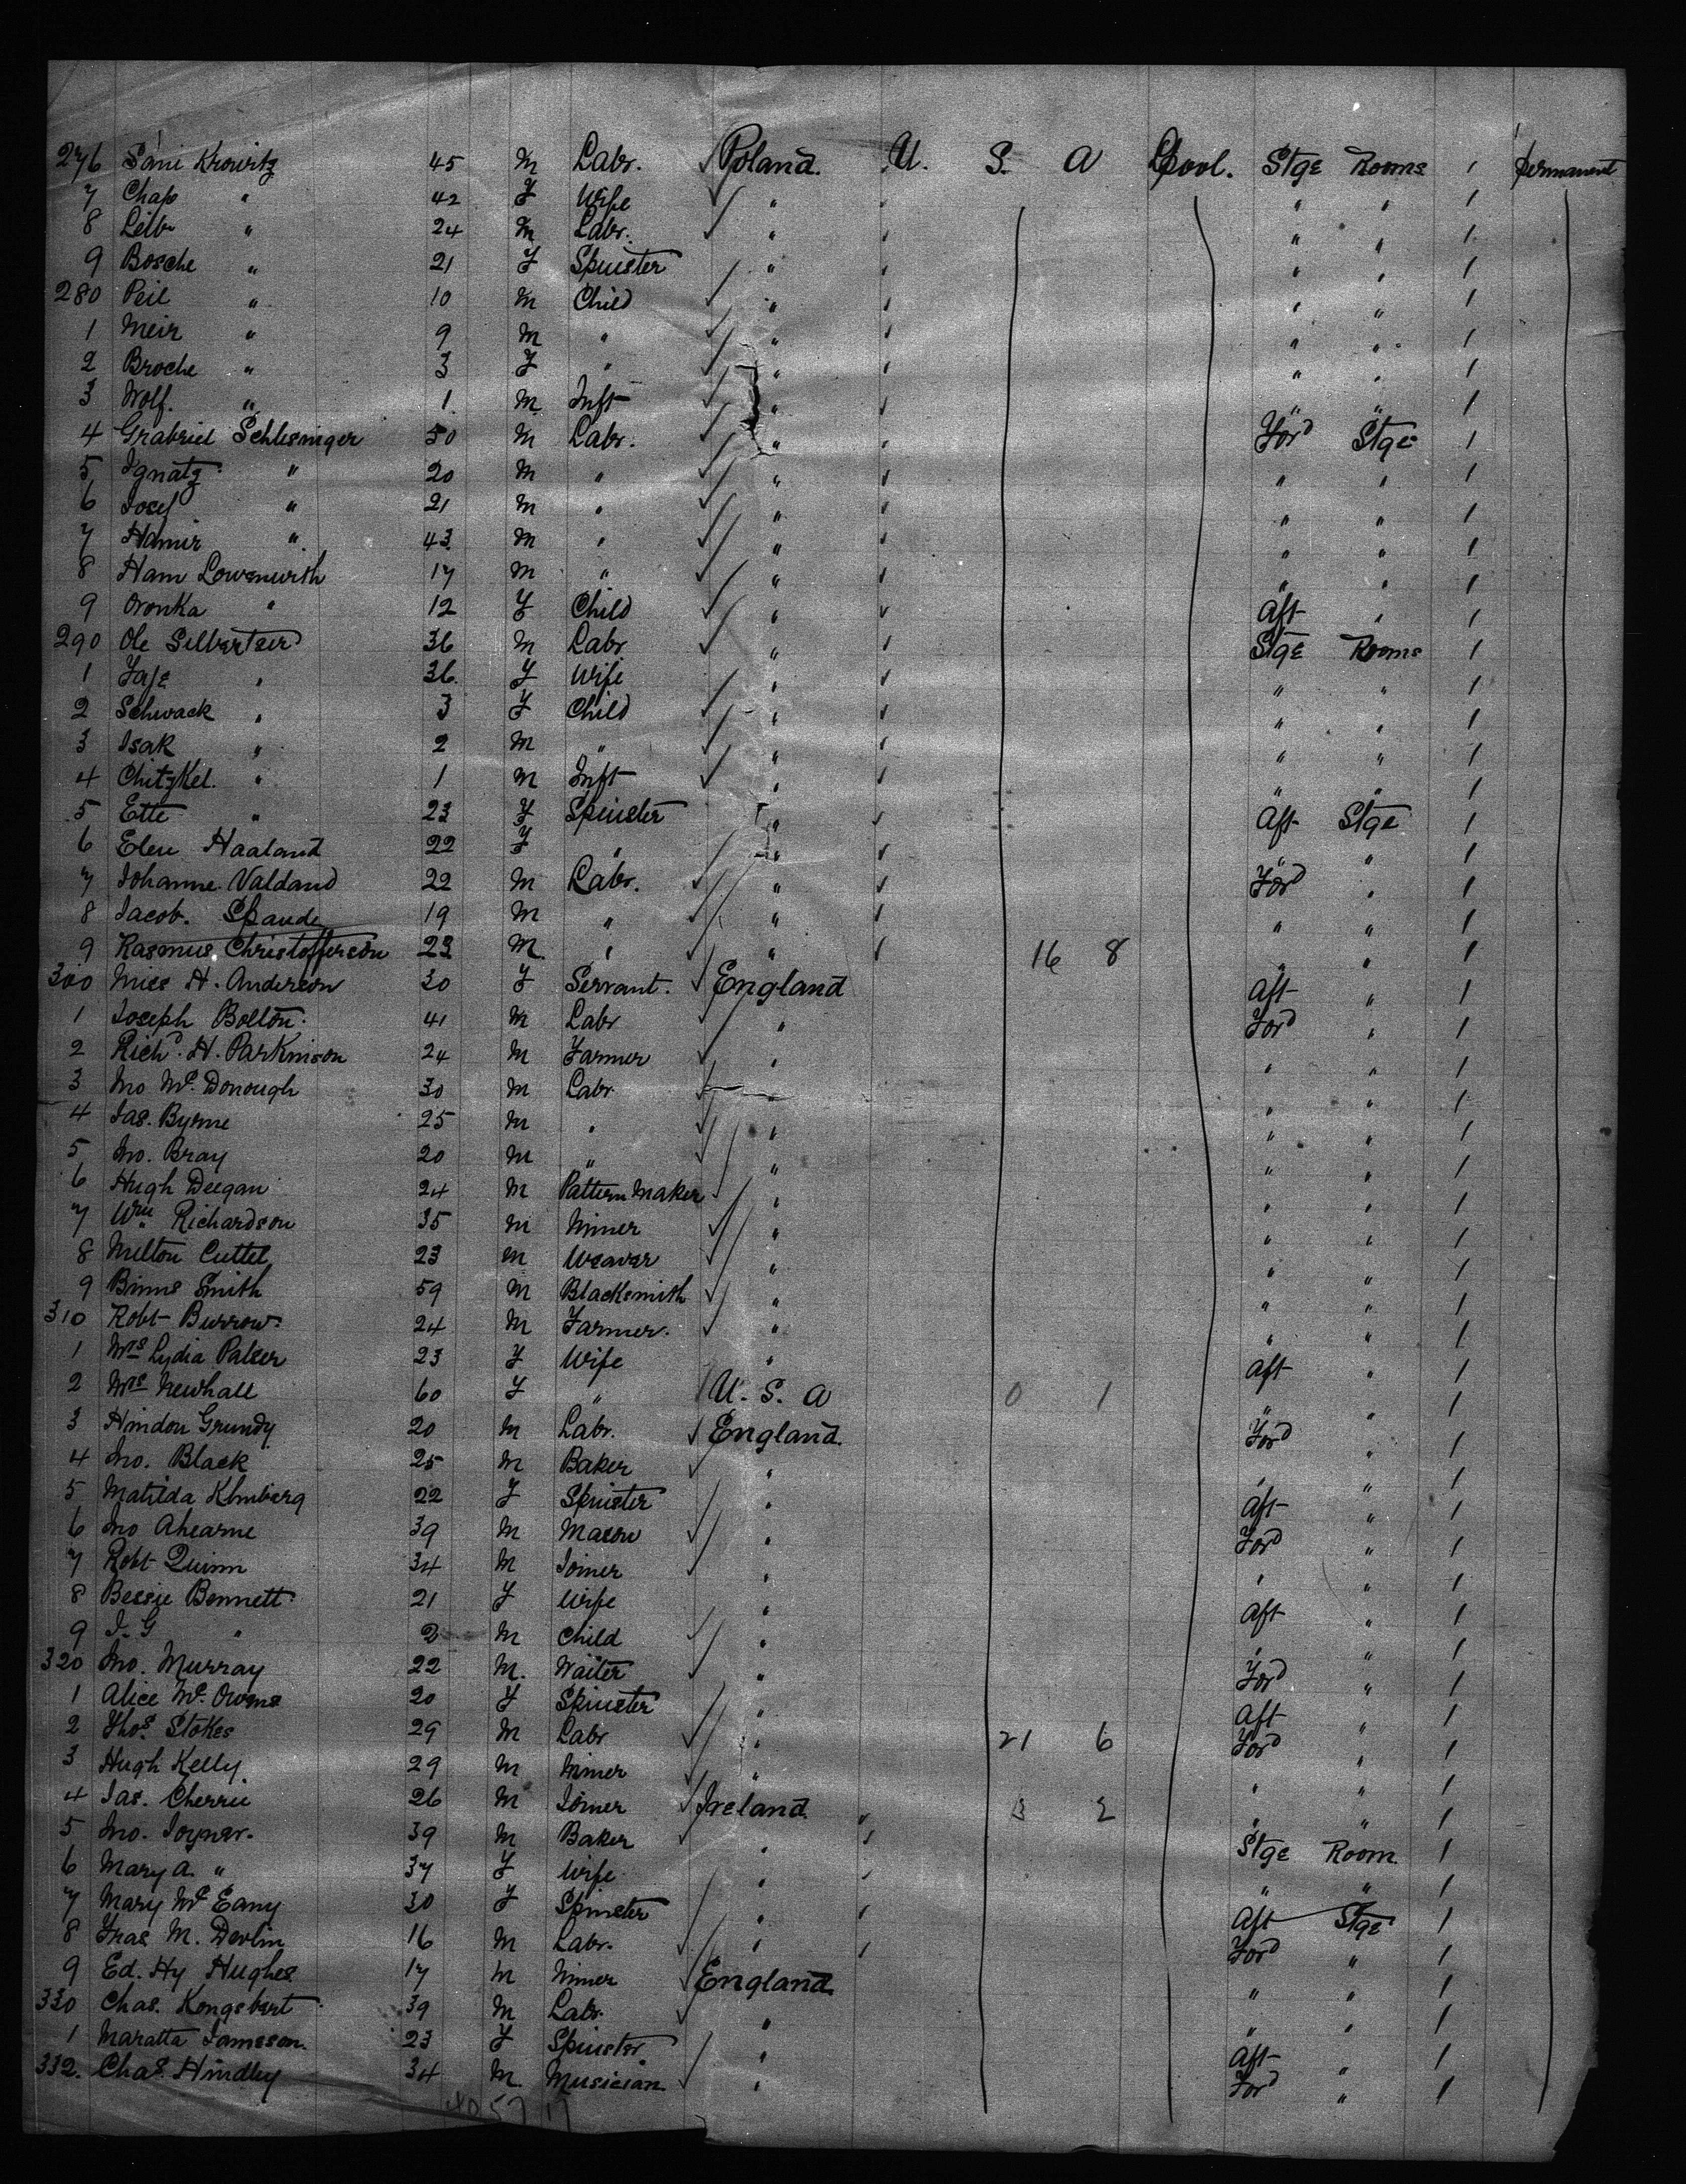 276 Sami Krowitz 45 M Labr. Poland. U. S. A Lpool. Stge Rooms 1 permanent
7 Chap " 42 F Wife " " " 1
8 Leib " 24 M Labr. " " " 1
9 Bosche " 21 F Spinster " " " 1
280 Peil " 10 M Child " " " 1
1 Meir " 9 M " " " " 1
2 Broche " 3 F " " " " 1
3 Wolf. " 1 M Inft " " " 1
4 Grabriel Schlesinger 50 M Labr. " Ford Stge 1
5 Ignatz " 20 M " " " " 1
6 Josef " 21 M " " " " 1
7 Hamir " 43 M " " " " 1
8 Ham Lowenwirth 17 M " " " " 1
9 Oronka " 12 F Child " Aft " 1
290 Ole Silbertser 36 M Labr " Stge Rooms 1
1 Faje " 36 F Wife " " " 1
2 Schwack " 3 F Child " " " 1
3 Isak " 2 M " " " " 1
4 Chitzkel. " 1 M Inft " " " 1
5 Ette " 23 F Spinster " Aft Stge 1
6 Elen Haaland 22 F " " " " 1
7 Johanne Valdand 22 M Labr. " Ford " 1
8 Jacob. Spaude 19 M " " " " 1
9 Rasmus Christofferson 23 M " " 16 8 " " 1
300 Miss H. Anderson 30 F Servant. England Aft " 1
1 Joseph Bolton 41 M Labr " Ford " 1
2 Richd. H. Parkinson 24 M Farmer " " " 1
3 Jno Mc. Donough 30 M Labr " " 1
4 Jas. Byrne 25 M " " " " 1
5 Jno. Bray 20 M " " " " 1
6 Hugh Deegan 24 M Pattern Maker " " " 1
7 Wm Richardson 35 M Miner " " " 1
8 Milton Cuttel 23 M Weaver " " " 1
9 Binns Smith 59 M Blacksmith " " " 1
310 Robt Burrow 24 M Farmer. " " " 1
1 Mrs Lydia Palser 23 F Wife " Aft " 1
2 Mrs Newhall 60 F " U. S. A 0 1 " " 1
3 Hindon Grundy 20 M Labr. England. Ford " 1
4 Jno. Black 25 M Baker " " " 1
5 Matilda Klmberg 22 F Spinster " Aft " 1
6 Jno Ahearne 39 M Mason " Ford " 1
7 Robt Quinn 34 M Joiner " " " 1
8 Bessie Bennett 21 F Wife " Aft " 1
9 J. G " 2 M Child " " " 1
320 Jno. Murray 22 M. Waiter " Ford " 1
1 Alice Mc. Owens 20 F Spinster " Aft " 1
2 Thos. Stokes 29 M Labr " 21 6 Ford " 1
3 Hugh Kelly 29 M Miner " " " 1
4 Jas. Cherrie 26 M Joiner Ireland. " 3 2 " " 1
5 Jno. Joyner. 39 M Baker " Stge Room 1
6 Mary A. " 37 F Wife " " " 1
7 Mary Mc Eany 30 F Spinster " Aft Stge 1
8 Fras M. Devlin 16 M Labr. " Ford " 1
9 Ed. Hy Hughes 17 M Miner England " " 1
330 Chas. Kongsbert 39 M Labr. " " " 1
1 Maratta Jameson. 23 F Spinster " Aft " 1
332. Chas. Hindley 34 M. Musician " Ford " 1